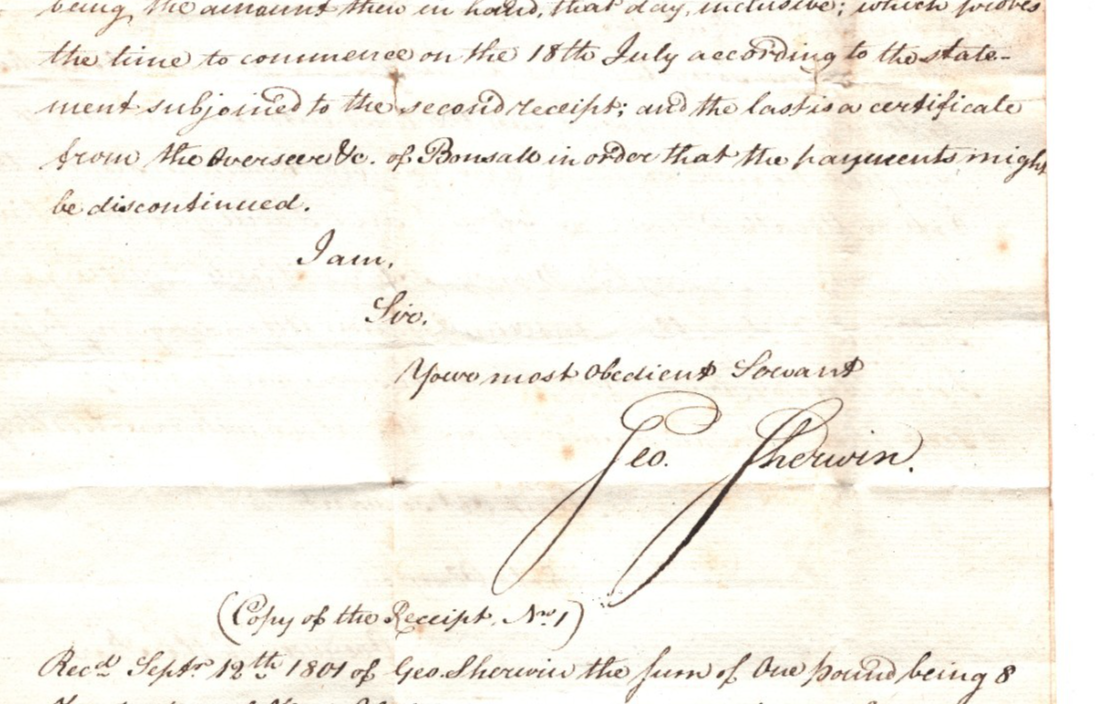 being the amount then in hand, that day, inclusive; which proves
the time to commence on the 18th July according to the state-
ment subjoined to the second receipt; and the last is a certificate
from the Overseer &c. of Bonsall in order that the payments might
be discontinued.
I am,
Sir,
Your most Obedient Servant
Geo. Sherwin.
(Copy of the Receipt, No. 1)
Recd Septr. 12th 1801 of Geo. Sherwin the sum of One pound being 8